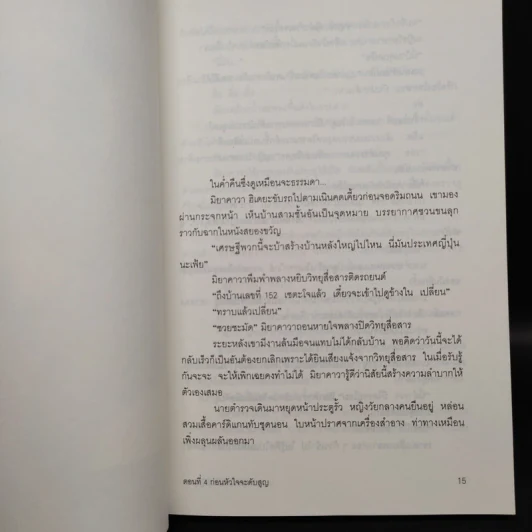 ในค่ำคืนซึ่งดูเหมือนจะธรรมดา...
มิยาคาวา ฮิเดยะขับรถไปตามเนินคดเคี้ยวก่อนจอดริมถนน เขามอง
ผ่านกระจกหน้า เห็นบ้านสามชั้นอันเป็นจุดหมาย บรรยากาศชวนขนลุก
ราวกับฉากในหนังสยองขวัญ
“เศรษฐีพวกนี้จะบ้าสร้างบ้านหลังใหญ่ไปไหน นี่มันประเทศญี่ปุ่น
นะเฟ้ย”
มิยาคาวาพึมพำพลางหยิบวิทยุสื่อสารติดรถยนต์
“ถึงบ้านเลขที่ 152 เซตะโจแล้ว เดี๋ยวจะเข้าไปดูข้างใน เปลี่ยน”
“ทราบแล้วเปลี่ยน”
“ซวยชะมัด” มิยาคาวาถอนหายใจพลางปิดวิทยุสื่อสาร
ระยะหลังเขามีงานล้นมือจนแทบไม่ได้กลับบ้าน พอคิดว่าวันนี้จะได้
กลับเร็วก็เป็นอันต้องยกเลิกเพราะได้ยินเสียงแจ้งจากวิทยุสื่อสาร ในเมื่อรับรู้
กันจะจะ จะให้เพิกเฉยคงทำไม่ได้ มิยาคาวารู้ดีว่านิสัยนี้สร้างความลำบากให้
ตัวเองเสมอ
นายตำรวจเดินมาหยุดหน้าประตูรั้ว หญิงวัยกลางคนยืนอยู่ หล่อน
สวมเสื้อคาร์ดิแกนทับชุดนอน ใบหน้าปราศจากเครื่องสำอาง ท่าทางเหมือน
เพิ่งผลุนผลันออกมา
ตอนที่ 4 ก่อนหัวใจจะดับสูญ
15